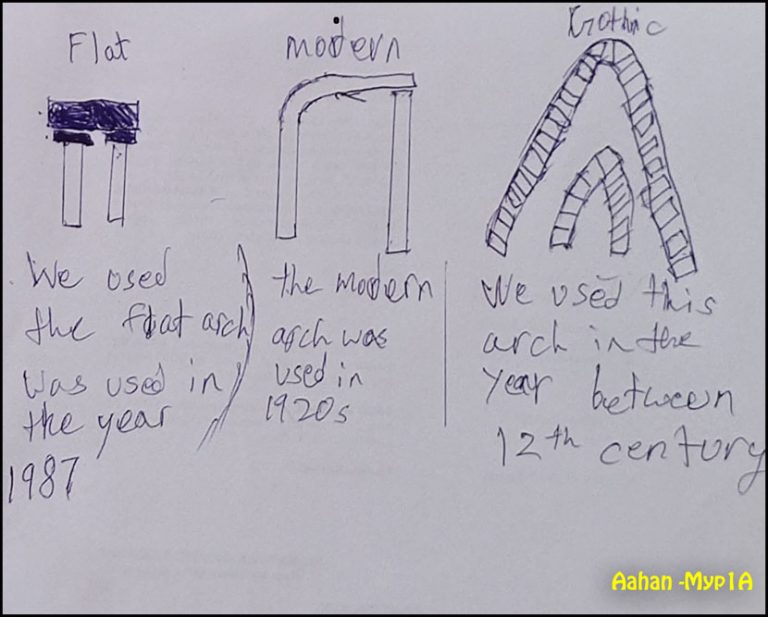 Flat
We used
the flat arch
was used in
the year
1987
modern
the modern
arch was
used in
1920s
Gothic
We used this
arch in the
year between
12th century
Aahan -Myp1A